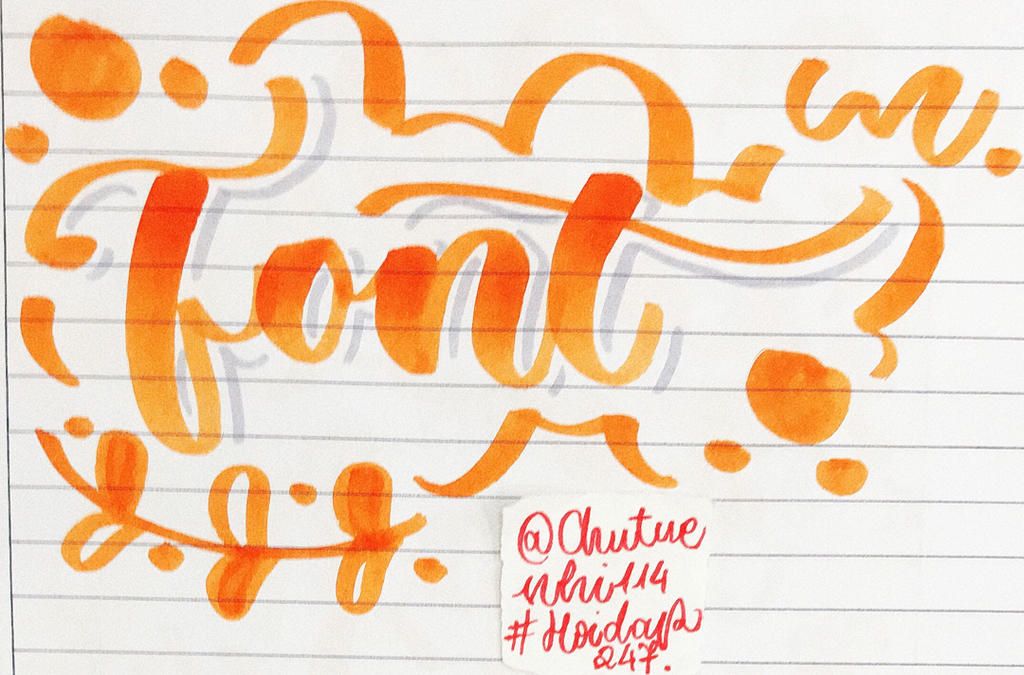 font
@Chutue
nhi114
#Hoidap
247.